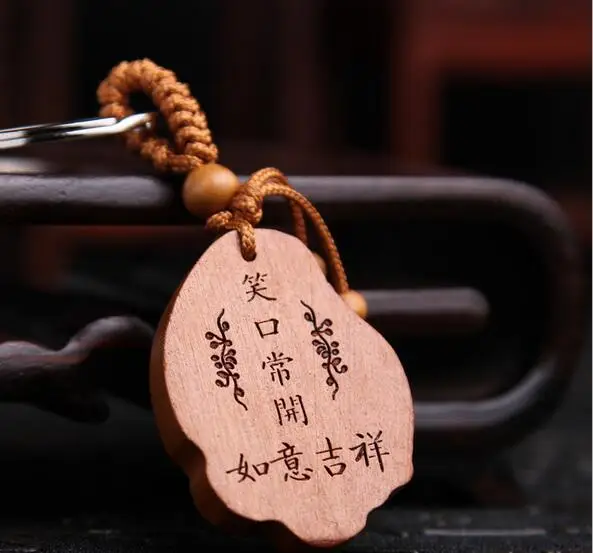 笑口常開
如意吉祥